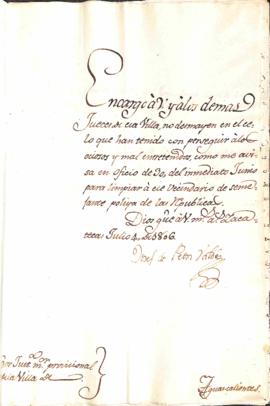 Encargo à V. y à los demas
Jueces de esa Villa, no desmayen en el ce-
lo que han tenido con perseguir à los
ociosos y mal entretenidos, como me avi-
sa en oficio de 30, del inmediato Junio
para limpiar à ese Vecindario de seme-
jante polilla de las Republicas.
Dios gue à V. m.s a.s Zaca-
tecas Julio 4, de 1806.
Juez m.or provicional
Villa de
Aguascalientes